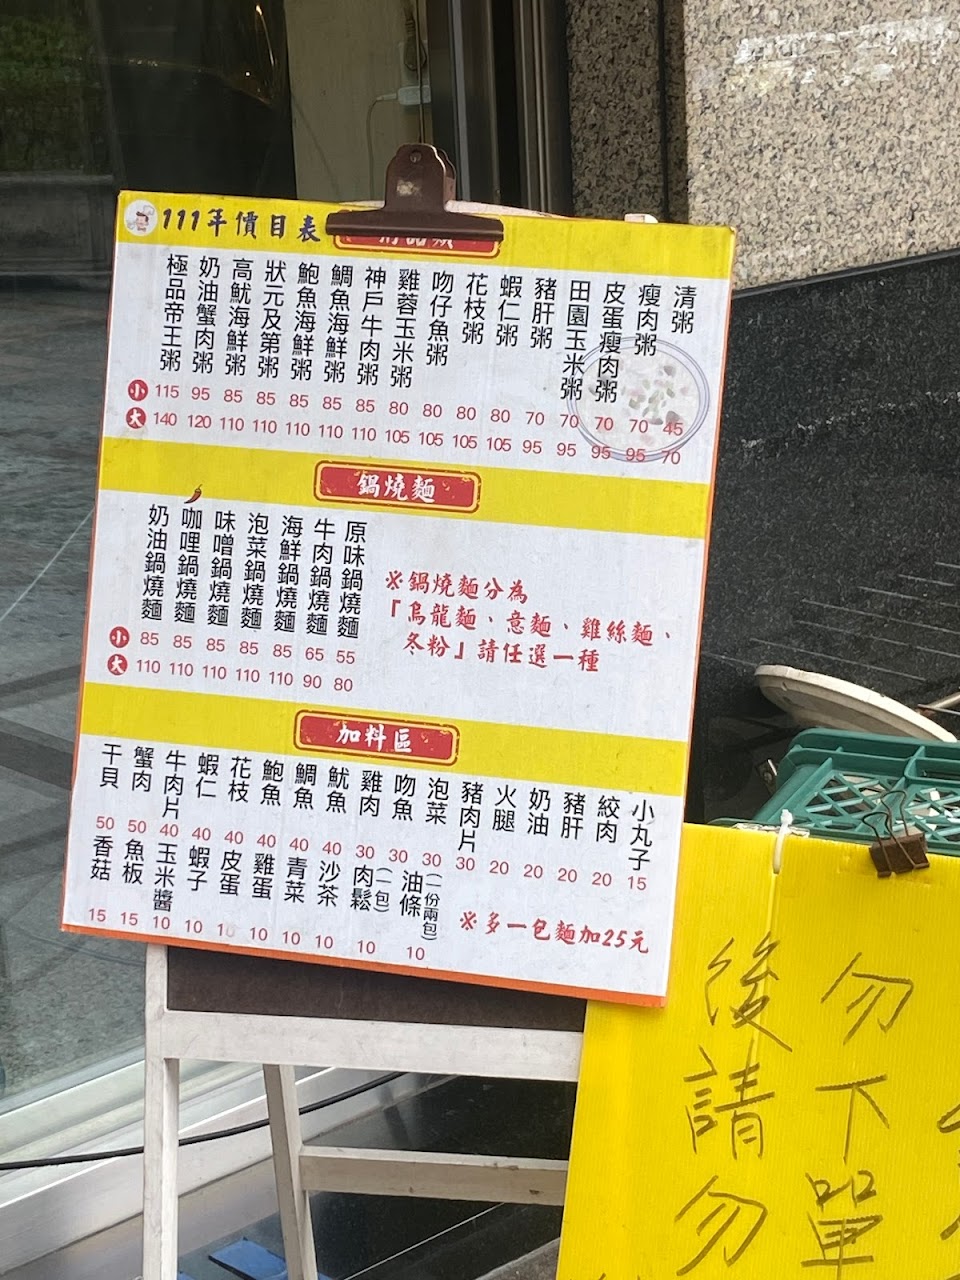 111年價目表
清粥
瘦肉粥
皮蛋瘦肉粥
田園玉米粥
豬肝粥
蝦仁粥
花枝粥
吻仔魚粥
雞蓉玉米粥
神戶牛肉粥
鯛魚海鮮粥
鮑魚海鮮粥
狀元及第粥
高魷海鮮粥
奶油蟹肉粥
極品帝王粥
小 115 95 85 85 85 85 85 80 80 80 80 70 70 70 70 45
大 140 120 110 110 110 110 110 105 105 105 105 95 95 95 95 70
鍋燒麵
原味鍋燒麵
牛肉鍋燒麵
海鮮鍋燒麵
泡菜鍋燒麵
味噌鍋燒麵
咖哩鍋燒麵
奶油鍋燒麵
小 85 85 85 85 85 65 55
大 110 110 110 110 110 90 80
※鍋燒麵分為
「烏龍麵、意麵、雞絲麵、
冬粉」請任選一種
加料區
小丸子
絞肉
豬肝
奶油
火腿
豬肉片
泡菜
吻魚
雞肉
魷魚
鯛魚
鮑魚
花枝
蝦仁
牛肉片
蟹肉
干貝
50 50 40 40 40 40 40 40 30 30 30 30 20 20 20 20 15
油條(一份兩包)
肉鬆(一包)
沙茶
青菜
雞蛋
皮蛋
蝦子
玉米醬
魚板
香菇
15 15 10 10 10 10 10 10 10 10
※多一包麵加25元
勿下單
後請勿